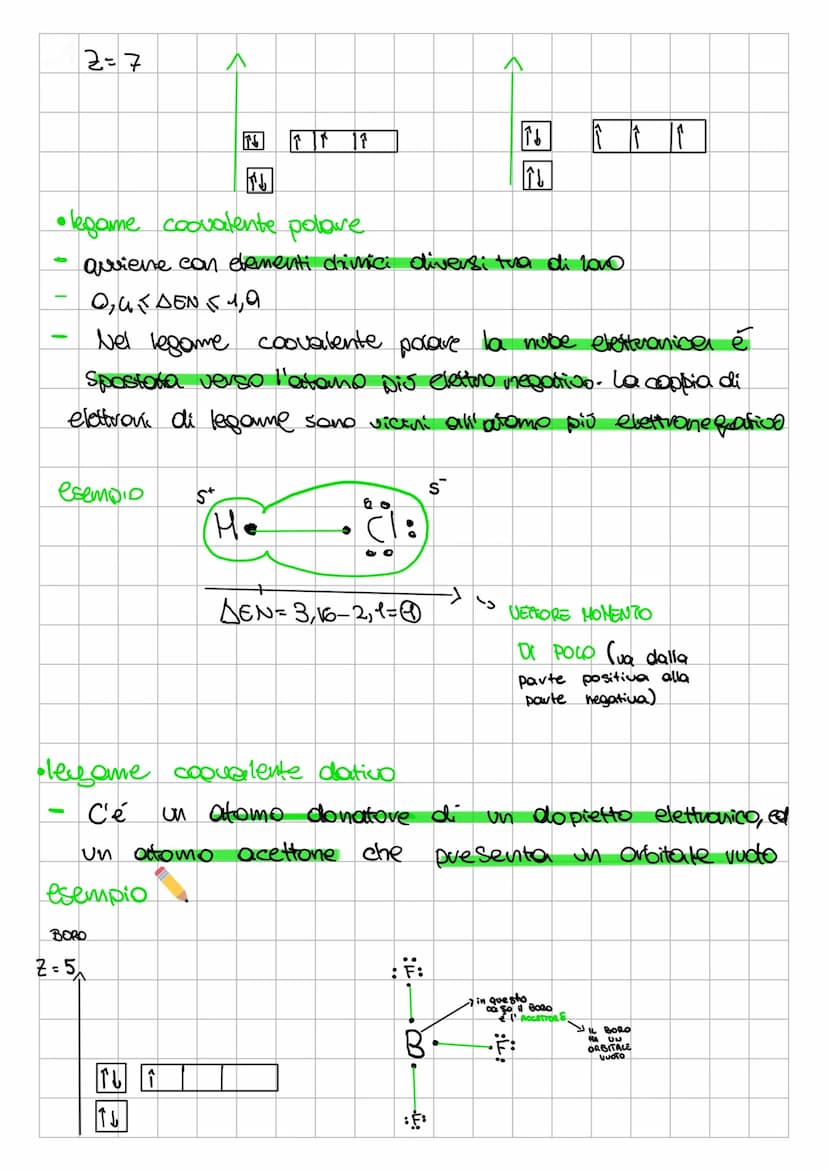 Z=7
• legame coovalente polare
- avviene con elementi chimici diversi tra di loro
- 0,4 ≤ ΔEN ≤ 1,9
- Nel legame coovalente polare la nube elettronica é
spostata verso l'atomo più elettro negativo. La coppia di
elettroni di legame sono vicini all'atomo più elettronegativo
esempio
S⁺
S⁻
H
Cl
ΔEN= 3,16-2,1=1
VETTORE MOMENTO
DI POLO (va dalla
parte positiva alla
parte negativa)
• legame coovalente dativo
- C'é un atomo donatore di un dopietto elettronico, ed
un atomo acettone che presenta un orbitale vuoto
esempio
BORO
Z=5
:F:
in questo
caso il BORO
è l'ACCETTORE
B
F:
IL BORO
HA UN
ORBITALE
VUOTO
:F: